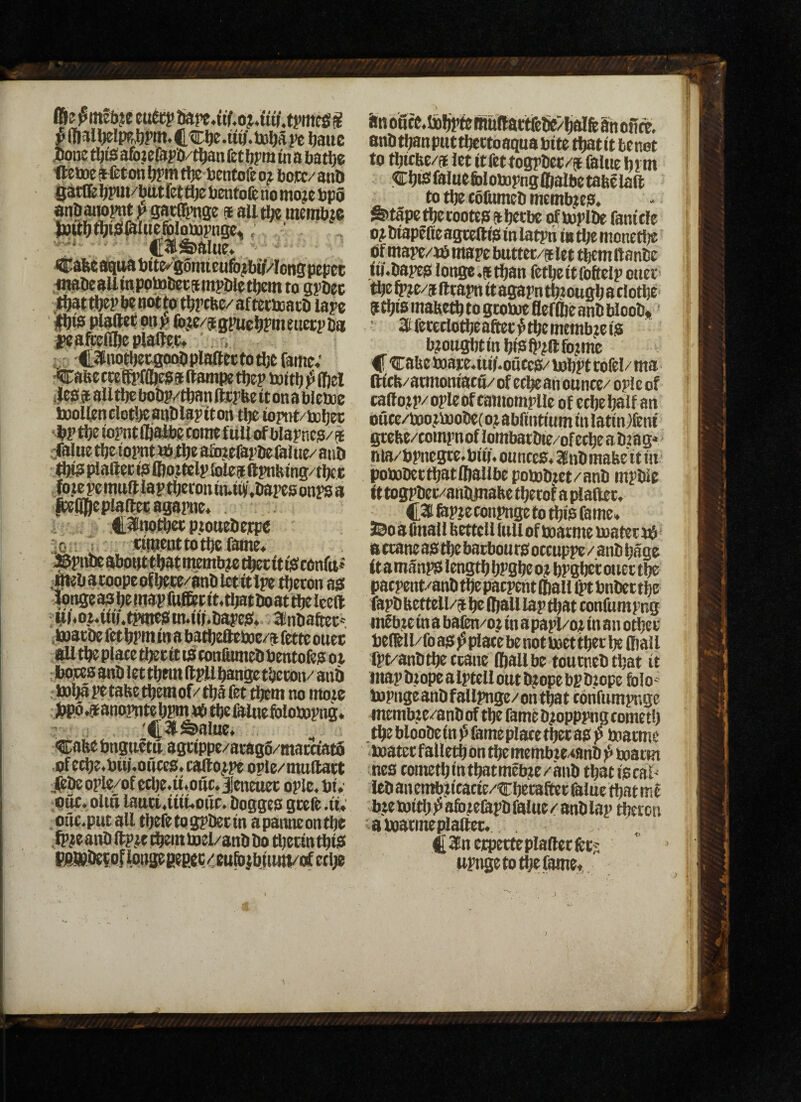 ſhe þ mēbꝛe euery daye .iii. oꝛ .iiii. tymes ⁊
þ ſhal helpe hym. ¶ The .iiii. whā ye haue
done this afoꝛeſayd/ than ſet hym in a bathe
ſtewe ⁊ ſet on hym the ventoſe oꝛ boxe/ and
garſſe hym/ but ſet the ventoſe no moꝛe vpō
and anoynt þ garſſynge ⁊ all the membꝛe
with this ſalue folowynge.
¶ A Salue.
Take aqua vite/ gōmi eufoꝛbij/ long peper
made all in powder ⁊ myble them to gyder
that they be not to thycke/ afterward laye
this plaſter on þ ſoꝛe/ ⁊ gyue hym euery da
ye a freſſhe plaſter.
¶ Another good plaſter to the ſame.
Take creſtyſſhes ⁊ ſtampe they with þ ſhel
les ⁊ all the body/ than ſtryke it on a blewe
wollen clothe and lay it on the ioynt/ wher
by the ioynt ſhalbe come full of blaynes/ ⁊
ſalue the ioynt w̄ the afoꝛeſayde ſalue/ and
this plaſter is ſhoꝛtely ſole ⁊ ſtynking/ ther
foꝛe ye muſt lay theron in .iiij. dayes onys a
freſſhe plaſter agayne.
¶ Another pꝛoued expe
riment to the ſame.
Bynde about that membꝛe ther it is conſu-
med a roope of here/ and let it lye theron as
longe as he may ſuffer it. that do at the leeſt
iij. oꝛ. iiij. tymes in. iij. dayes. And after-
warde ſet hym in a batheſtewe/ ⁊ ſette ouer
all the place ther it is conſumed ventoſes oꝛ
boxes and let them ſtyll hange theron/ and
whā ye take them of/ thā ſet them no moꝛe
vpō. ⁊ anoynte hym w̄ the ſalue folowyng.
¶ A Salue.
Take vnguētū agrippe/ aragō/ marciatō
of eche. viij. oūces. caſtoꝛye oyle/ muſtart
ſede oyle/ of eche. ii. oūc. Jeneuer oyle. vi.
oūc. oliū lauri. iiii. oūc. dogges greſe .ii.
oūc. put all theſe to gyder in a panne on the
fyꝛe and ſtyꝛe them wel/ and do therin this
powder of longe peper/ eufoꝛbium/ of eche
an oūce. whyte muſtartſede/ halfe an oūce.
and than put therto aqua vite that it be not
to thicke/ ⁊ let it ſet togyder/ ⁊ ſalue hym
This ſalue folowyng ſhalbe takē laſt
to the cōſumed membꝛes.
Stāpe the rootes ⁊ herbe of wylde ſanicle
oꝛ diapēſie agreſtis in latyn in the monethe
of maye/ w̄ maye butter/ ⁊ let them ſtande
iij. dayes longe. ⁊ than ſethe it ſoftely ouer
the fyꝛe/ ⁊ ſtrayn it agayn thꝛough a clothe
⁊ this maketh to growe fleſſhe and blood.
A ſereclothe after þ the membꝛe is
bꝛought in his fyꝛſt foꝛme
¶ Take waxe. iiij. oūces/ whyt roſel/ ma
ſtick/ armoniacū/ of eche an ounce/ oyle of
caſtoꝛy/ oyle of camomylle of eche half an
oūce/ woꝛmwode(oꝛ abſintium in latin)feni
greke/ comyn of lombardie/ of eche a dꝛag-
ma/ vynegre. viij. ounces. And make it in
powder that ſhall be powdꝛet/ and myble
it togyder/ and make therof a plaſter.
¶ A ſapꝛeconynge to this ſame.
Do a ſmall kettell full of warme water w̄
a crane as the barbours occupye/ and hāge
it a mānys length hyghe oꝛ hygher ouer the
pacyent/ and the pacyent ſhall ſyt vnder the
ſayd kettell/ ⁊ he ſhall lay that conſumyng
mēbꝛe in a baſen/ oꝛ in a payl/ oꝛ in an other
veſſell/ ſo as þ place be not wet ther he ſhall
ſyt/ and the crane ſhall be tourned that it
may dꝛope a lytell out dꝛope by dꝛope folo-
wynge and fallynge/ on that conſumynge
membꝛe/ and of the ſame dꝛoppyng cometh
the bloode in þ ſame place ther as þ warme
water falleth on the membꝛe. and þ warm
nes cometh in that mēbꝛe/ and that is cal-
led an embꝛicacie/ Therafter ſalue that mē
bꝛe with þ afoꝛeſayd ſalue/ and lay theron
a warme plaſter.
¶ An experte plaſter ſer-
uynge to the ſame.